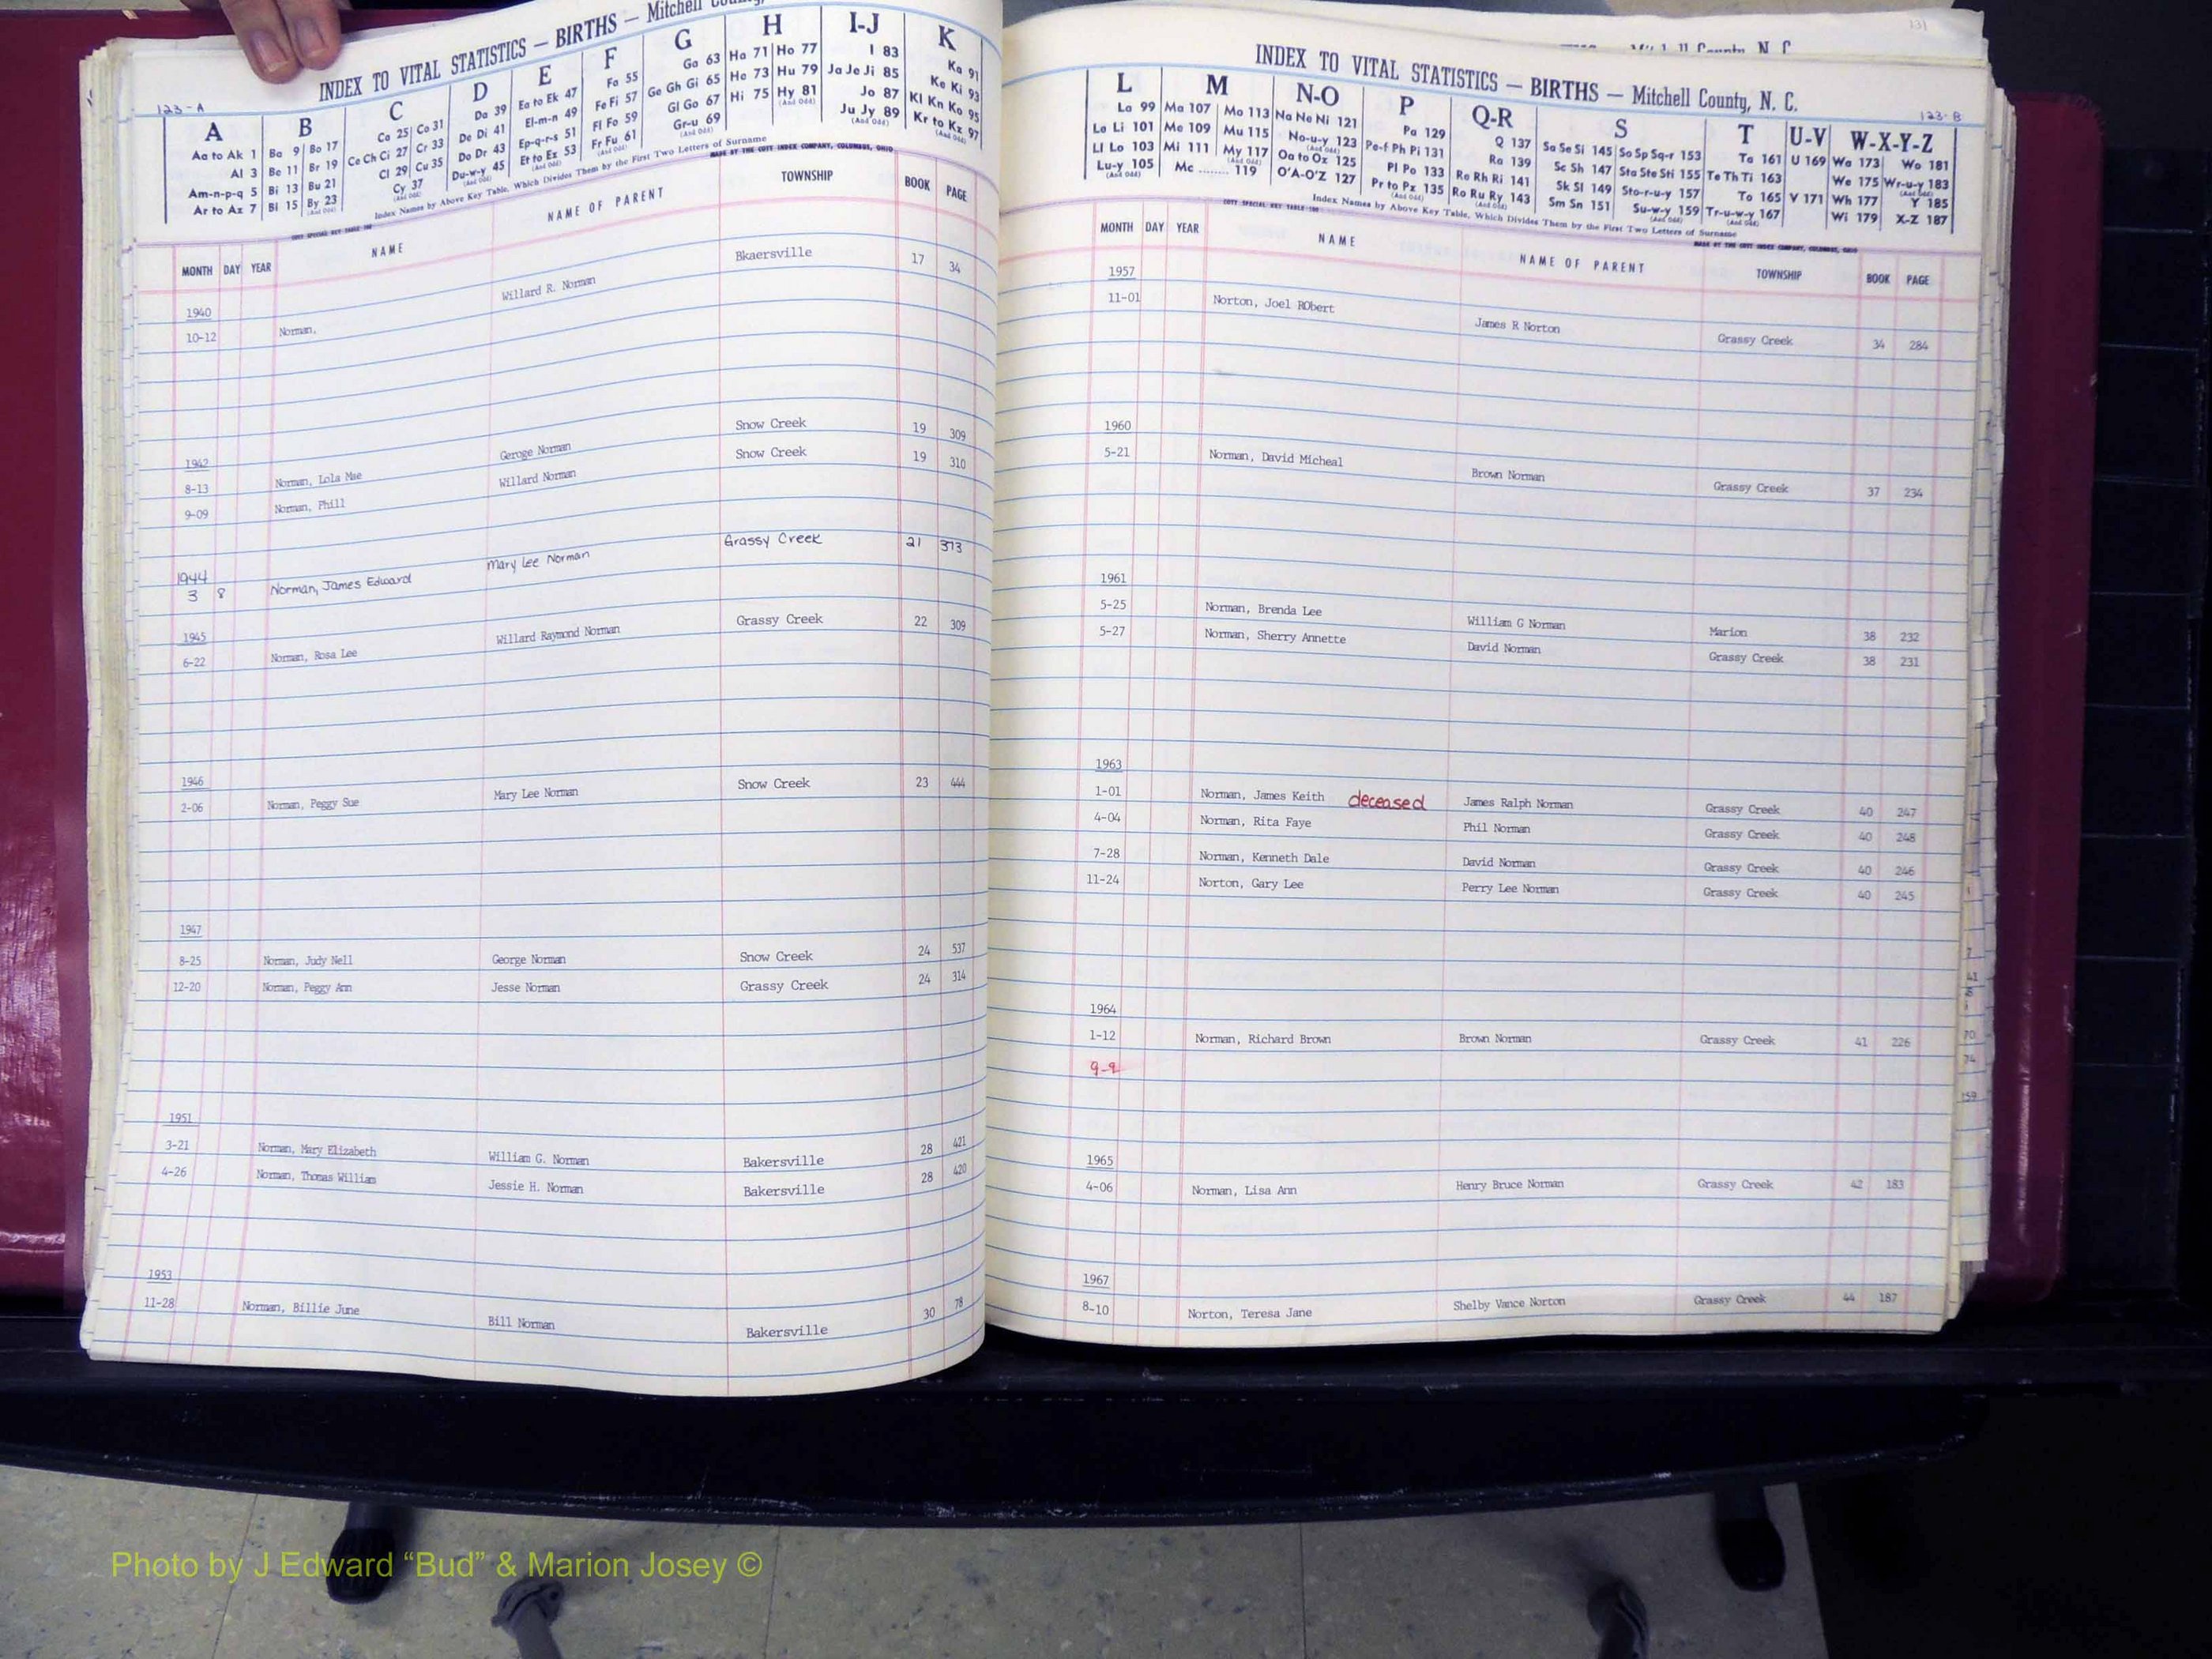 INDEX TO VITAL STATISTICS — BIRTHS — Mitchell
123-A
A B C D E F G H I-J K
Aa to Ak 1
Al 3
Am-n-p-q 5
Ar to Az 7
Ba 9 Bo 17
Be 11 Br 19
Bi 13 Bu 21
Bl 15 By 23
(And Odd)
Ca 25 Co 31
Ce Ch Ci 27 Cr 33
Cl 29 Cu 35
Cy 37
(And Odd)
Da 39
De Di 41
Do Dr 43
Du-w-y 45
(And Odd)
Ea to Ek 47
El-m-n 49
Ep-q-r-s 51
Et to Ez 53
(And Odd)
Fa 55
Fe Fi 57
Fl Fo 59
Fr Fu 61
(And Odd)
Ga 63
Ge Gh Gi 65
Gl Go 67
Gr-u 69
(And Odd)
Ha 71 Ho 77
He 73 Hu 79
Hi 75 Hy 81
(And Odd)
I 83
Ja Je Ji 85
Jo 87
Ju Jy 89
(And Odd)
Ka 91
Ke Ki 93
Kl Kn Ko 95
Kr to Kz 97
(And Odd)
Index Names by Above Key Table, Which Divides Them by the First Two Letters of Surname
MADE BY THE COTT INDEX COMPANY, COLUMBUS, OHIO
MONTH DAY YEAR NAME NAME OF PARENT TOWNSHIP BOOK PAGE
1940
10-12 Norman, Willard R. Norman Bkaersville 17 34
1942
8-13 Norman, Lola Mae Geroge Norman Snow Creek 19 309
9-09 Norman, Phill Willard Norman Snow Creek 19 310
1944
3 8 Norman, James Edward Mary Lee Norman Grassy Creek 21 373
1945
6-22 Norman, Rosa Lee Willard Raymond Norman Grassy Creek 22 309
1946
2-06 Norman, Peggy Sue Mary Lee Norman Snow Creek 23 444
1947
8-25 Norman, Judy Nell George Norman Snow Creek 24 537
12-20 Norman, Peggy Ann Jesse Norman Grassy Creek 24 314
1951
3-21 Norman, Mary Elizabeth William G. Norman Bakersville 28 421
4-26 Norman, Thomas William Jessie H. Norman Bakersville 28 420
1953
11-28 Norman, Billie June Bill Norman Bakersville 30 78
131
INDEX TO VITAL STATISTICS — BIRTHS — Mitchell County, N. C.
123-B
L M N-O P Q-R S T U-V W-X-Y-Z
La 99
Le Li 101
Ll Lo 103
Lu-y 105
(And Odd)
Ma 107 Mo 113
Me 109 Mu 115
Mi 111 My 117
(And Odd)
Mc ........ 119
Na Ne Ni 121
No-u-y 123
(And Odd)
Oa to Oz 125
O'A-O'Z 127
Pa 129
Pe-f Ph Pi 131
Pl Po 133
Pr to Pz 135
(And Odd)
Q 137
Ra 139
Re Rh Ri 141
Ro Ru Ry 143
(And Odd)
Sa Se Si 145 So Sp Sq-r 153
Sc Sh 147 Sta Ste Sti 155
Sk Sl 149 Sto-r-u-y 157
Sm Sn 151 Su-w-y 159
(And Odd)
Ta 161
Te Th Ti 163
To 165
Tr-u-w-y 167
(And Odd)
U 169
V 171
Wa 173 Wo 181
We 175 Wr-u-y 183
(And Odd)
Wh 177 Y 185
Wi 179 X-Z 187
Index Names by Above Key Table, Which Divides Them by the First Two Letters of Surname
MADE BY THE COTT INDEX COMPANY, COLUMBUS, OHIO
MONTH DAY YEAR NAME NAME OF PARENT TOWNSHIP BOOK PAGE
1957
11-01 Norton, Joel RObert James R Norton Grassy Creek 34 284
1960
5-21 Norman, David Micheal Brown Norman Grassy Creek 37 234
1961
5-25 Norman, Brenda Lee William G Norman Marion 38 232
5-27 Norman, Sherry Annette David Norman Grassy Creek 38 231
1963
1-01 Norman, James Keith deceased James Ralph Norman Grassy Creek 40 247
4-04 Norman, Rita Faye Phil Norman Grassy Creek 40 248
7-28 Norman, Kenneth Dale David Norman Grassy Creek 40 246
11-24 Norton, Gary Lee Perry Lee Norman Grassy Creek 40 245
1964
1-12 Norman, Richard Brown Brown Norman Grassy Creek 41 226
9-9
1965
4-06 Norman, Lisa Ann Henry Bruce Norman Grassy Creek 42 183
1967
8-10 Norton, Teresa Jane Shelby Vance Norton Grassy Creek 44 187
Photo by J Edward “Bud” & Marion Josey ©